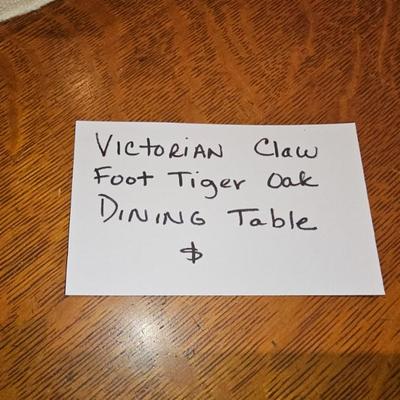 Victorian Claw
Foot Tiger Oak
Dining Table
$